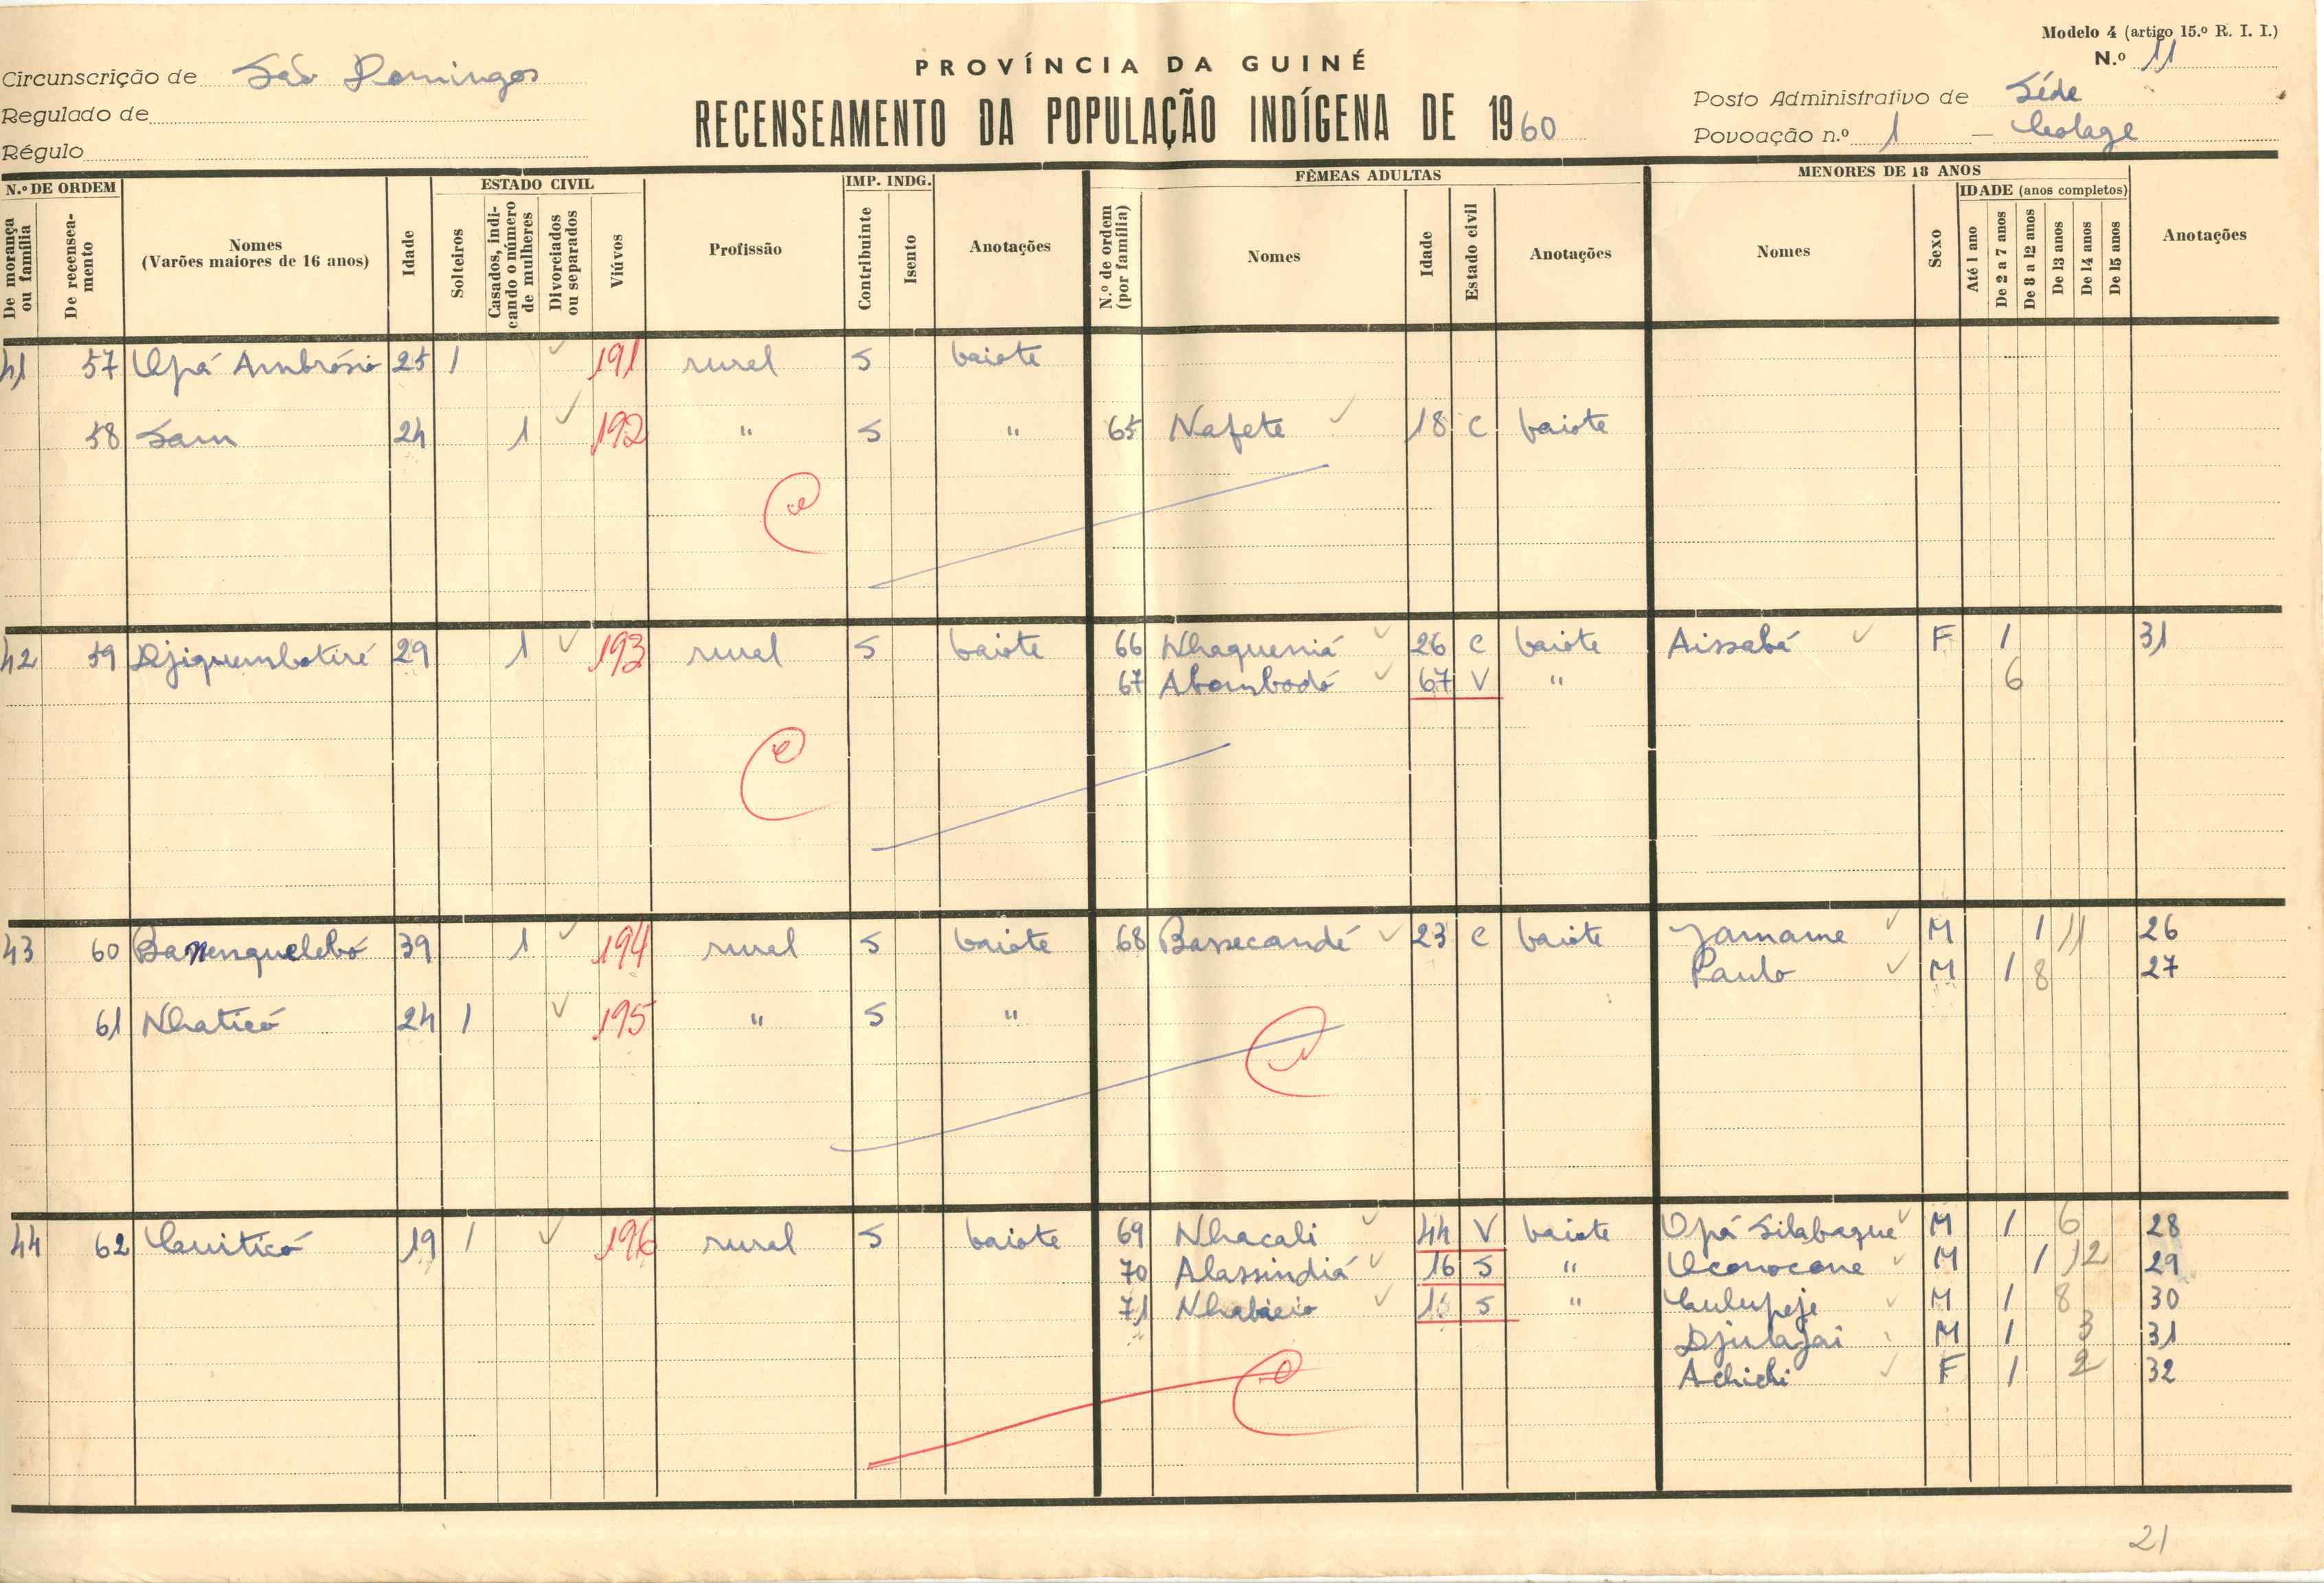 Modelo 4 (artigo 15.º R. I. I.)
PROVÍNCIA DA GUINÉ
N.º 11
Circunscrição de São Domingos
Posto Administrativo de Séde
Regulado de
RECENSEAMENTO DA POPULAÇÃO INDÍGENA DE 1960
Povoação n.º 1 —
Régulo
N.º DE ORDEM
ESTADO CIVIL
IMP. INDG.
FÊMEAS ADULTAS
MENORES DE 18 ANOS
IDADE (anos completos)
De morança ou família
De recenseamento
Nomes
(Varões maiores de 16 anos)
Idade
Solteiros
Casados, indicando o número de mulheres
Divorciados ou separados
Viúvos
Profissão
Contribuinte
Isento
Anotações
N.º de ordem (por família)
Nomes
Idade
Estado civil
Anotações
Nomes
Sexo
Até 1 ano
De 2 a 7 anos
De 8 a 12 anos
De 13 anos
De 14 anos
De 15 anos
Anotações
41 57 Opá Ambrósio 25 1 191 rural S baiote
58 Sam 24 1 192 " S " 65 Nafete 18 C baiote
42 59 Djiquembotiré 29 1 193 rural S baiote 66 Nhaqueniá 26 C baiote Aissabá F 1 31
67 Abombodó 67 V " 6
43 60 Banenquelebó 39 1 194 rural S baiote 68 Bassecandé 23 C baiote Jamame M 1 11 26
Paulo M 1 8 27
61 Nhaticó 24 1 195 " S "
44 62 Cuiticó 19 1 196 rural S baiote 69 Nhacali 44 V baiote Opá Silabaque M 1 6 28
70 Alassindiá 16 S " Oconocone M 1 12 29
71 16 S " Culupeje M 1 8 30
Djulajai M 1 3 31
Achichi F 1 2 32
21